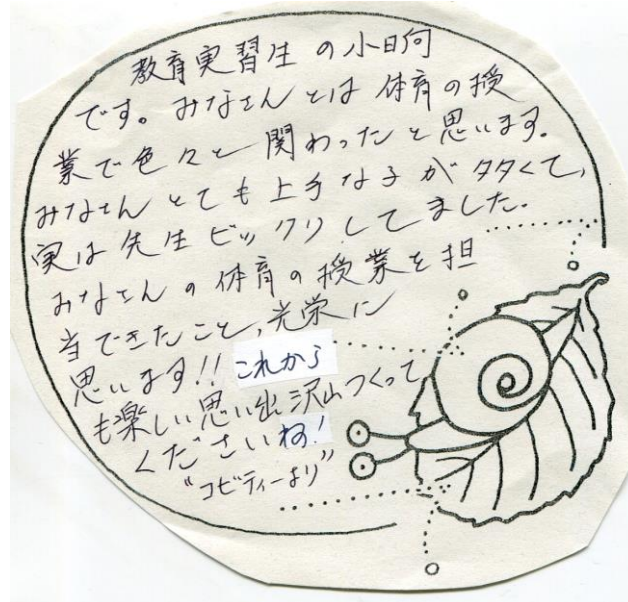 教育実習生の小日向
です。みなさんとは体育の授
業で色々と関わったと思います。
みなさんとても上手な子が多くて、
実は先生ビックリしてました。
みなさんの体育の授業を担
当できたこと、光栄に
思います!!これから
も楽しい思い出沢山つくって
くださいね!
“コビティーより”